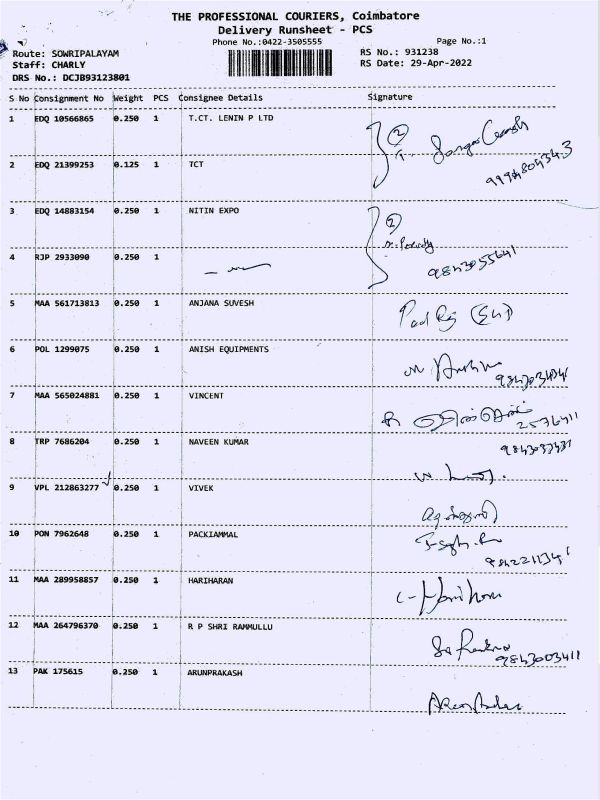 THE PROFESSIONAL COURIERS, Coimbatore
Delivery Runsheet - PCS
Phone No.:0422-3505555 Page No.:1
Route: SOWRIPALAYAM RS No.: 931238
Staff: CHARLY RS Date: 29-Apr-2022
DRS No.: DCJB93123801
S No Consignment No Weight PCS Consignee Details Signature
1 EDQ 10566865 0.250 1 T.CT. LENIN P LTD
2
2 EDQ 21399253 0.125 1 TCT
3 EDQ 14883154 0.250 1 NITIN EXPO
2
4 RJP 2933090 0.250 1
9843055641
5 MAA 561713813 0.250 1 ANJANA SUVESH
6 POL 1299075 0.250 1 ANISH EQUIPMENTS
7 MAA 565024881 0.250 1 VINCENT
2576411
8 TRP 7686204 0.250 1 NAVEEN KUMAR
9 VPL 212863277 0.250 1 VIVEK
10 PON 7962648 0.250 1 PACKIAMMAL
11 MAA 289958857 0.250 1 HARIHARAN
12 MAA 264796370 0.250 1 R P SHRI RAMMULLU
9843003411
13 PAK 175615 0.250 1 ARUNPRAKASH